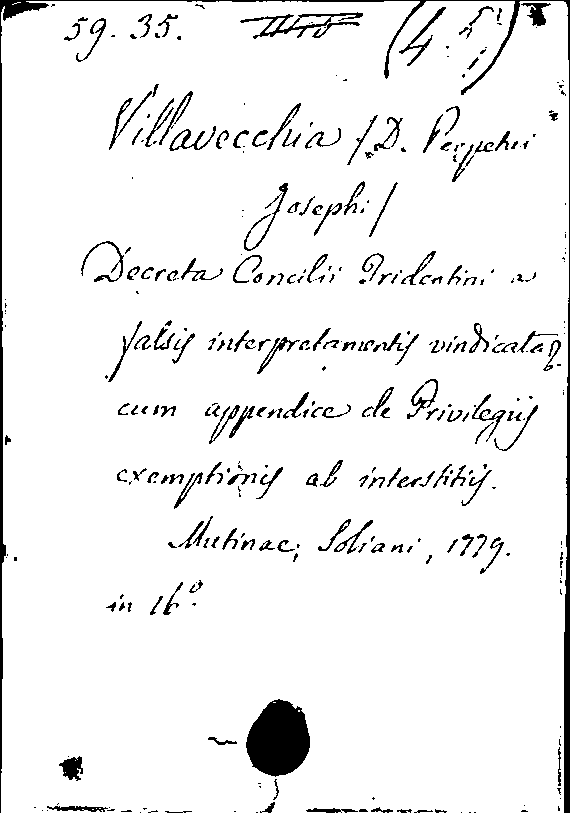 59. 35. (4. 5.
Villavecchia /D. Perpetui
Josephi/
Decreta Concilii Tridentini a
falsis interpretamentis vindicata
cum appendice de Privilegiis
exemptionis ab interstitiis.
Mutinae, Soliani, 1779.
in 16º.